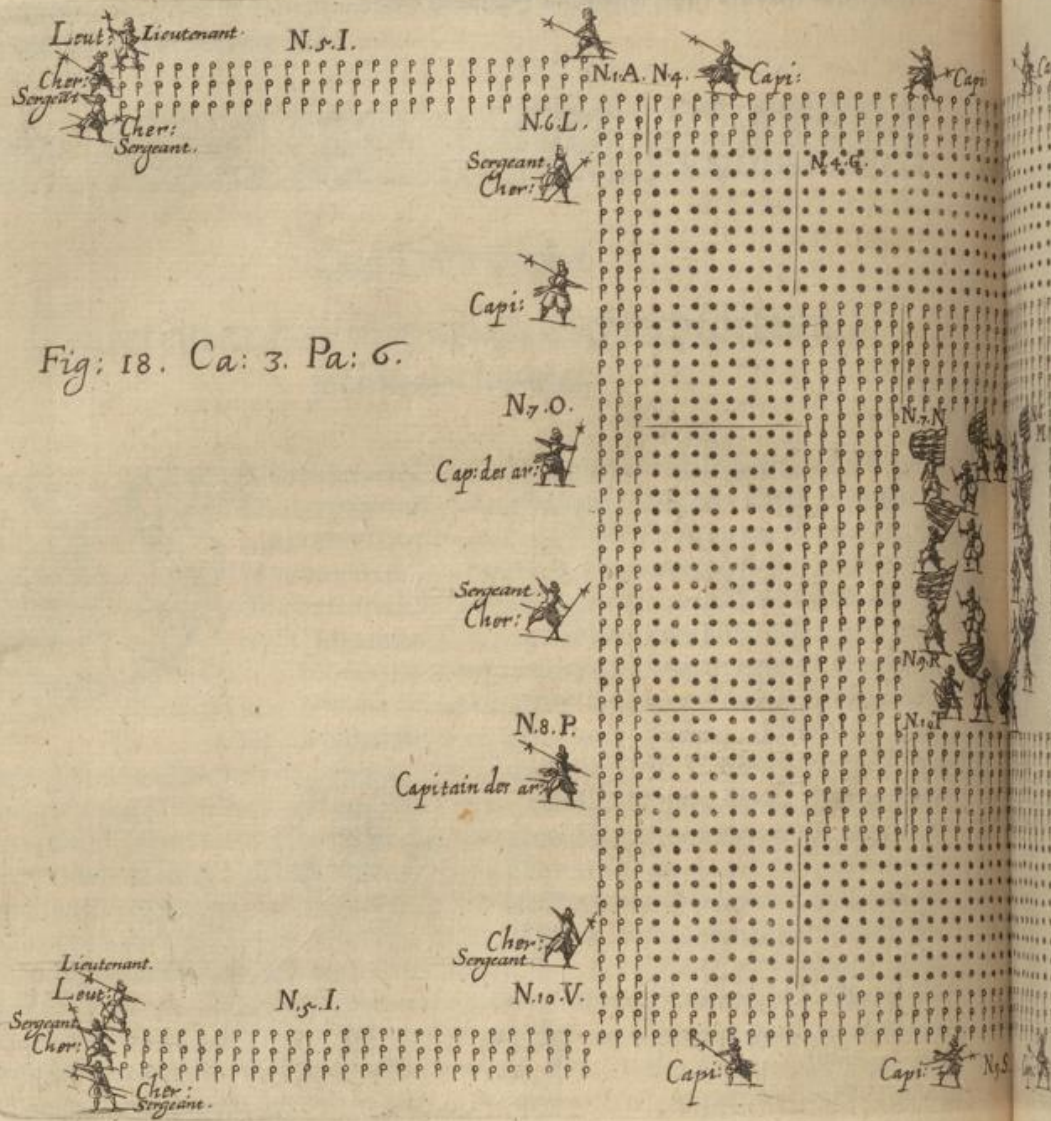 Leut: Lieutenant. N.5.I.
Cher:
Sergeant
Cher:
Sergeant.
N.1.A. N.4. Capi: Capi
N.6.L.
Sergeant.
Cher:
N.4.G.
Capi:
Fig: 18. Ca: 3. Pa: 6.
N.7.O.
N.7.N
Cap: des ar:
Sergeant
Cher:
N.9.R
N.8.P.
Capitain des ar
Cher:
Sergeant
Lieutenant.
Leut:
N.5.I.
N.10.V.
Sergeant
Cher:
Capi:
Capi:
Cher:
Sergeant.